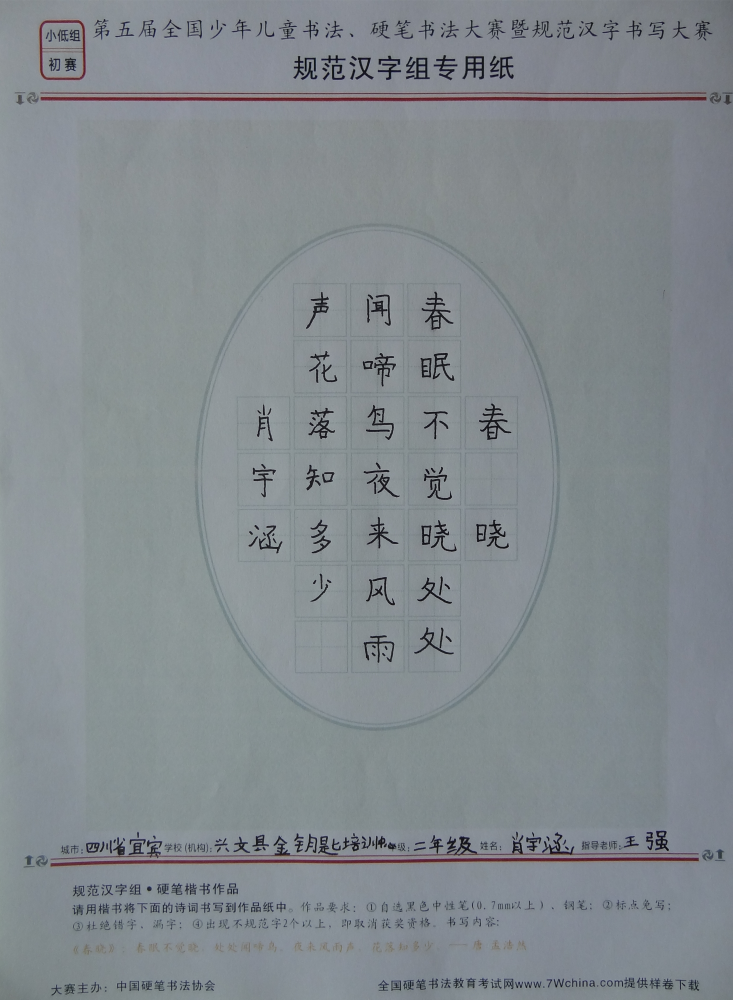 小低组
初赛
第五届全国少年儿童书法、硬笔书法大赛暨规范汉字书写大赛
规范汉字组专用纸
春晓
春眠不觉晓处处
闻啼鸟夜来风雨
声花落知多少
肖宇涵
城市:四川省宜宾 学校(机构):兴文县金钥匙培训中心 级:二年级 姓名:肖宇涵 指导老师:王强
规范汉字组·硬笔楷书作品
请用楷书将下面的诗词书写到作品纸中。作品要求:①自选黑色中性笔(0.7mm以上)、钢笔;②标点免写;
③杜绝错字,漏字;④出现不规范字2个以上,即取消获奖资格。书写内容:
《春晓》:春眠不觉晓,处处闻啼鸟。夜来风雨声,花落知多少。——唐 孟浩然
大赛主办:中国硬笔书法协会
全国硬笔书法教育考试网www.7Wchina.com提供样卷下载